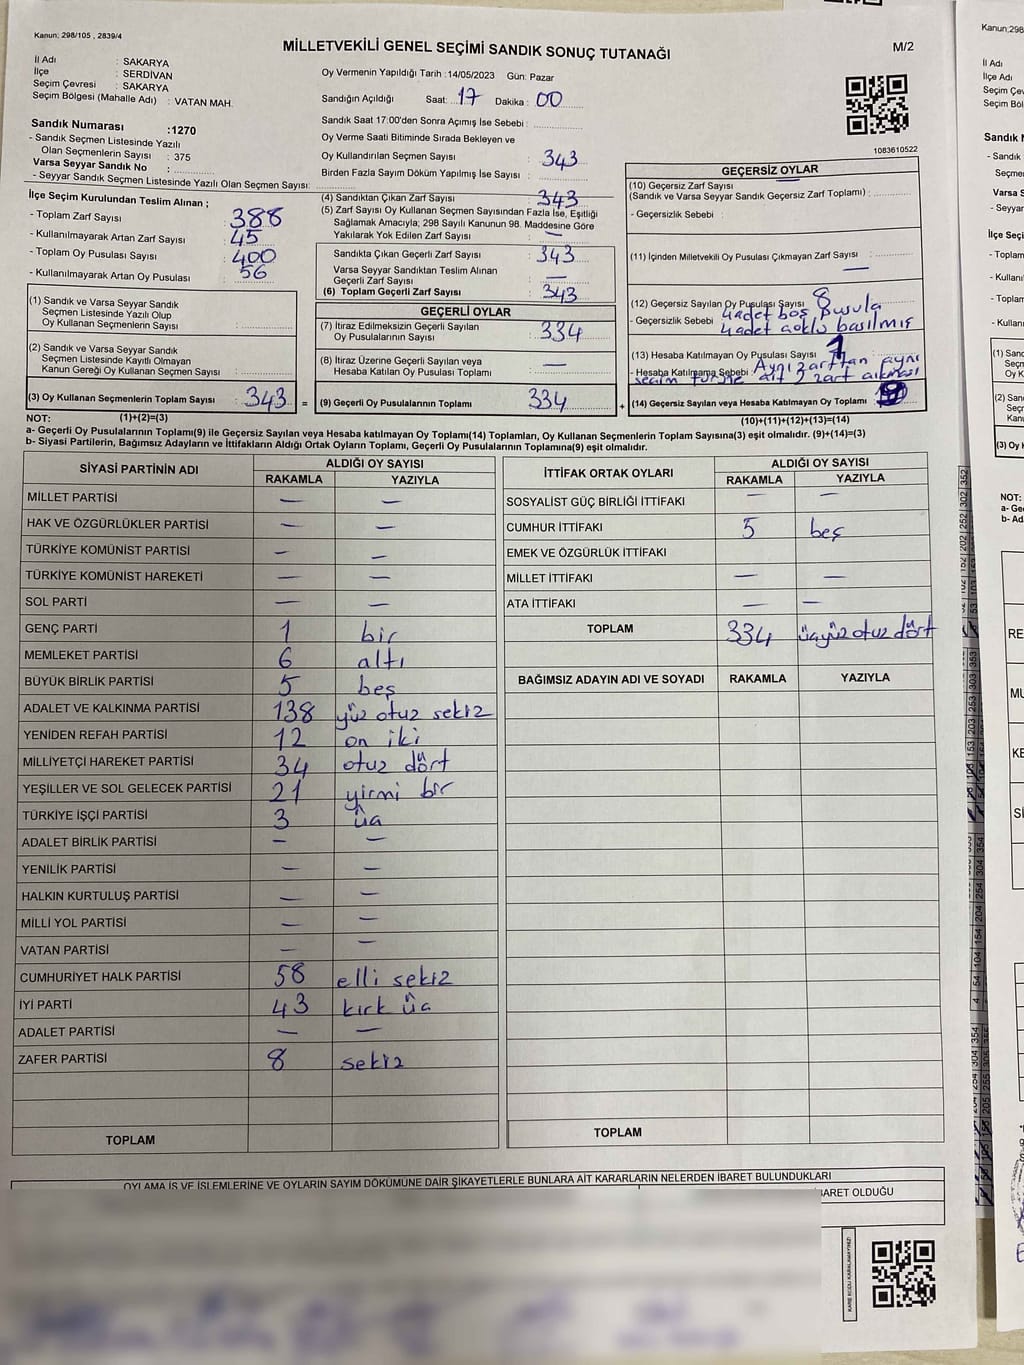 Kanun; 298/105 , 2839/4
MİLLETVEKİLİ GENEL SEÇİMİ SANDIK SONUÇ TUTANAĞI
M/2
İl Adı : SAKARYA
İlçe : SERDİVAN
Seçim Çevresi : SAKARYA
Seçim Bölgesi (Mahalle Adı) : VATAN MAH.
Sandık Numarası :1270
- Sandık Seçmen Listesinde Yazılı
Olan Seçmenlerin Sayısı : 375
Varsa Seyyar Sandık No :
- Seyyar Sandık Seçmen Listesinde Yazılı Olan Seçmen Sayısı:
Oy Vermenin Yapıldığı Tarih :14/05/2023 Gün: Pazar
Sandığın Açıldığı Saat: 17 Dakika : 00
Sandık Saat 17:00'den Sonra Açımış İse Sebebi :
Oy Verme Saati Bitiminde Sırada Bekleyen ve
Oy Kullandırılan Seçmen Sayısı : 343
Birden Fazla Sayım Döküm Yapılmış İse Sayısı :
1083610522
İlçe Seçim Kurulundan Teslim Alınan ;
- Toplam Zarf Sayısı : 388
- Kullanılmayarak Artan Zarf Sayısı : 45
- Toplam Oy Pusulası Sayısı : 400
- Kullanılmayarak Artan Oy Pusulası : 56
(1) Sandık ve Varsa Seyyar Sandık
Seçmen Listesinde Yazılı Olup
Oy Kullanan Seçmenlerin Sayısı :
(2) Sandık ve Varsa Seyyar Sandık
Seçmen Listesinde Kayıtlı Olmayan
Kanun Gereği Oy Kullanan Seçmen Sayısı :
(3) Oy Kullanan Seçmenlerin Toplam Sayısı : 343 =
(1)+(2)=(3)
(4) Sandıktan Çıkan Zarf Sayısı : 343
(5) Zarf Sayısı Oy Kullanan Seçmen Sayısından Fazla İse, Eşitliği
Sağlamak Amacıyla; 298 Sayılı Kanunun 98. Maddesine Göre
Yakılarak Yok Edilen Zarf Sayısı : —
Sandıkta Çıkan Geçerli Zarf Sayısı : 343
Varsa Seyyar Sandıktan Teslim Alınan
Geçerli Zarf Sayısı : —
(6) Toplam Geçerli Zarf Sayısı : 343
GEÇERLİ OYLAR
(7) İtiraz Edilmeksizin Geçerli Sayılan
Oy Pusulalarının Sayısı : 334
(8) İtiraz Üzerine Geçerli Sayılan veya
Hesaba Katılan Oy Pusulası Toplamı : —
(9) Geçerli Oy Pusulalarının Toplamı : 334 +
GEÇERSİZ OYLAR
(10) Geçersiz Zarf Sayısı
(Sandık ve Varsa Seyyar Sandık Geçersiz Zarf Toplamı) :
- Geçersizlik Sebebi :
(11) İçinden Milletvekili Oy Pusulası Çıkmayan Zarf Sayısı : —
(12) Geçersiz Sayılan Oy Pusulası Sayısı : 8
- Geçersizlik Sebebi 4 adet boş pusula
4 adet çoklu basılmış
(13) Hesaba Katılmayan Oy Pusulası Sayısı : 1
- Hesaba Katılmama Sebebi : Aynı zarftan aynı
seçim türüne ait
(14) Geçersiz Sayılan veya Hesaba Katılmayan Oy Toplamı
(10)+(11)+(12)+(13)=(14)
NOT:
a- Geçerli Oy Pusulalarının Toplamı(9) ile Geçersiz Sayılan veya Hesaba katılmayan Oy Toplamı(14) Toplamları, Oy Kullanan Seçmenlerin Toplam Sayısına(3) eşit olmalıdır. (9)+(14)=(3)
b- Siyasi Partilerin, Bağımsız Adayların ve İttifakların Aldığı Ortak Oyların Toplamı, Geçerli Oy Pusulalarının Toplamına(9) eşit olmalıdır.
SİYASİ PARTİNİN ADI ALDIĞI OY SAYISI
RAKAMLA YAZIYLA
MİLLET PARTİSİ — —
HAK VE ÖZGÜRLÜKLER PARTİSİ — —
TÜRKİYE KOMÜNİST PARTİSİ — —
TÜRKİYE KOMÜNİST HAREKETİ — —
SOL PARTİ — —
GENÇ PARTİ 1 bir
MEMLEKET PARTİSİ 6 altı
BÜYÜK BİRLİK PARTİSİ 5 beş
ADALET VE KALKINMA PARTİSİ 138 yüz otuz sekiz
YENİDEN REFAH PARTİSİ 12 on iki
MİLLİYETÇİ HAREKET PARTİSİ 34 otuz dört
YEŞİLLER VE SOL GELECEK PARTİSİ 21 yirmi bir
TÜRKİYE İŞÇİ PARTİSİ 3 üç
ADALET BİRLİK PARTİSİ — —
YENİLİK PARTİSİ — —
HALKIN KURTULUŞ PARTİSİ — —
MİLLİ YOL PARTİSİ — —
VATAN PARTİSİ — —
CUMHURİYET HALK PARTİSİ 58 elli sekiz
İYİ PARTİ 43 kırk üç
ADALET PARTİSİ — —
ZAFER PARTİSİ 8 sekiz
TOPLAM
İTTİFAK ORTAK OYLARI ALDIĞI OY SAYISI
RAKAMLA YAZIYLA
SOSYALİST GÜÇ BİRLİĞİ İTTİFAKI — —
CUMHUR İTTİFAKI 5 beş
EMEK VE ÖZGÜRLÜK İTTİFAKI
MİLLET İTTİFAKI — —
ATA İTTİFAKI — —
TOPLAM 334 üçyüz otuz dört
BAĞIMSIZ ADAYIN ADI VE SOYADI RAKAMLA YAZIYLA
TOPLAM
OYLAMA İŞ VE İŞLEMLERİNE VE OYLARIN SAYIM DÖKÜMÜNE DAİR ŞİKAYETLERLE BUNLARA AİT KARARLARIN NELERDEN İBARET BULUNDUKLARI
BARET OLDUĞU
KARE KODU KARALAMAYINIZ!